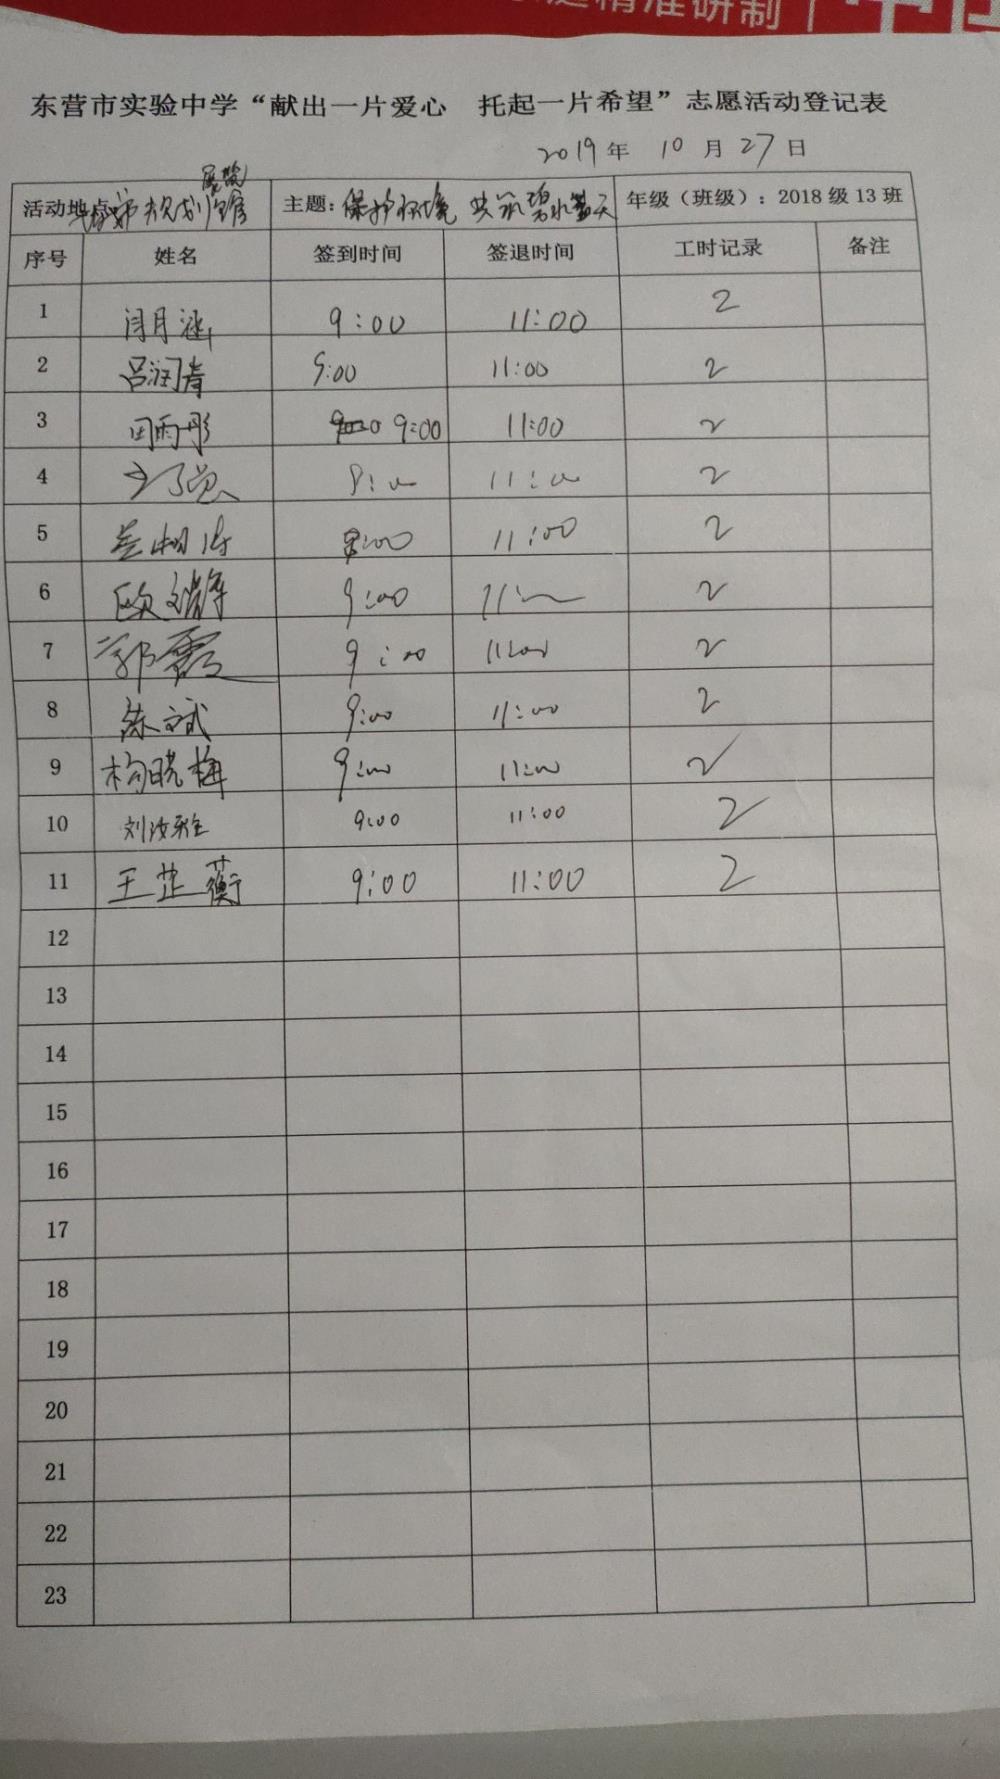 精准研制
东营市实验中学“献出一片爱心 托起一片希望”志愿活动登记表
2019年 10月 27日
展览
活动地点: 规划馆 主题: 保护环境 共筑碧水蓝天 年级（班级）: 2018 级 13 班
序号 姓名 签到时间 签退时间 工时记录 备注
1 闫月涵 9:00 11:00 2
2 吕润青 9:00 11:00 2
3 田雨彤 9:00 11:00 2
4 11:00 2
5 11:00 2
6 欧 9:00 11: 2
7 郭霞 9:00 11:00 2
8 陈文斌 9:00 11:00 2
9 杨晓梅 9:00 11:00 2
10 刘汝雅 9:00 11:00 2
11 王芷蘅 9:00 11:00 2
12
13
14
15
16
17
18
19
20
21
22
23